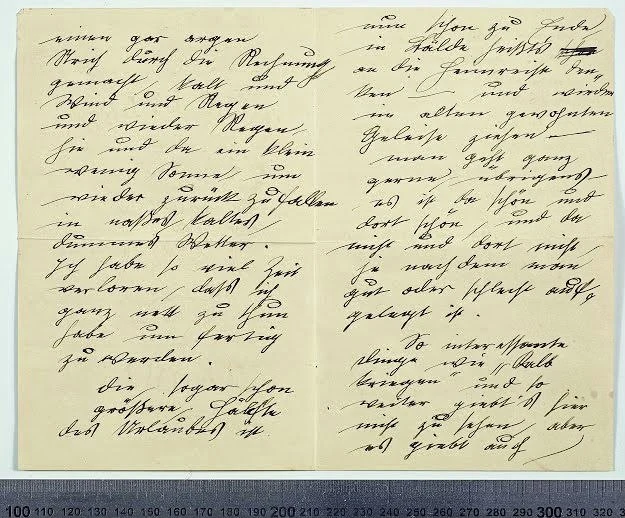 einen gar argen
Strich durch die Rechnung
gemacht kalt und
Wind und Regen
und wieder Regen,
hie und da ein klein
wenig Sonne um
wieder zurück zu fallen
in naßes kaltes
dummes Wetter.
Ich habe so viel Zeit
verloren, daß ich
ganz nett zu thun
habe um fertig
zu werden.
die sogar schon
größere Hälfte
des Urlaubes ist
nun schon zu Ende
in Bälde heißts
an die Heimreise den-
ken – und wieder
im alten gewohnten
Geleise ziehen –
man geht ganz
gerne übrigens
es ist da schön und
dort schön, und da
nicht und dort nicht
je nachdem man
gut oder schlecht auf-
gelegt ist.
So interessante
Dinge wie „Kalb
kriegen“ und so
weiter giebt's hier
nicht zu sehen, aber
es giebt auch
100 110 120 130 140 150 160 170 180 190 200 210 220 230 240 250 260 270 280 290 300 310 320